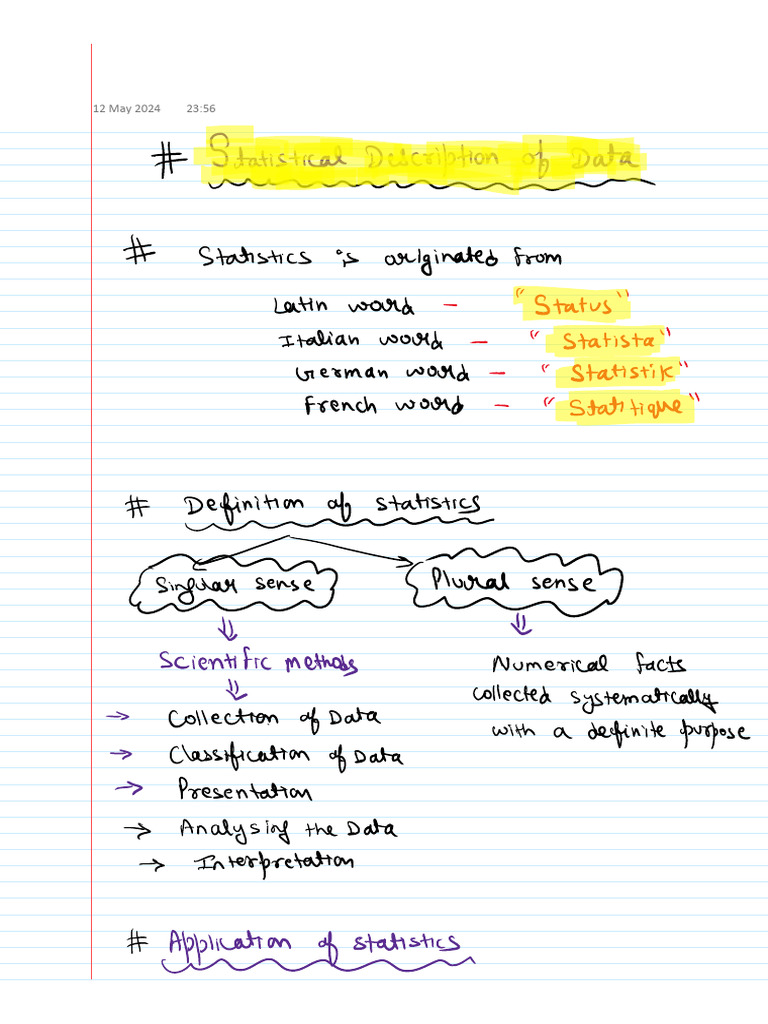 12 May 2024 23:56
# Statistical Description of Data
# Statistics is originated from
Latin word - "Status"
Italian word - "Statista"
German word - "Statistik"
French word - "Statitique"
# Definition of statistics
Singular sense
Plural sense
Scientific methods
Numerical facts
collected systematically
with a definite purpose
→ Collection of Data
→ Classification of Data
→ Presentation
→ Analysing the Data
→ Interpretation
# Application of statistics